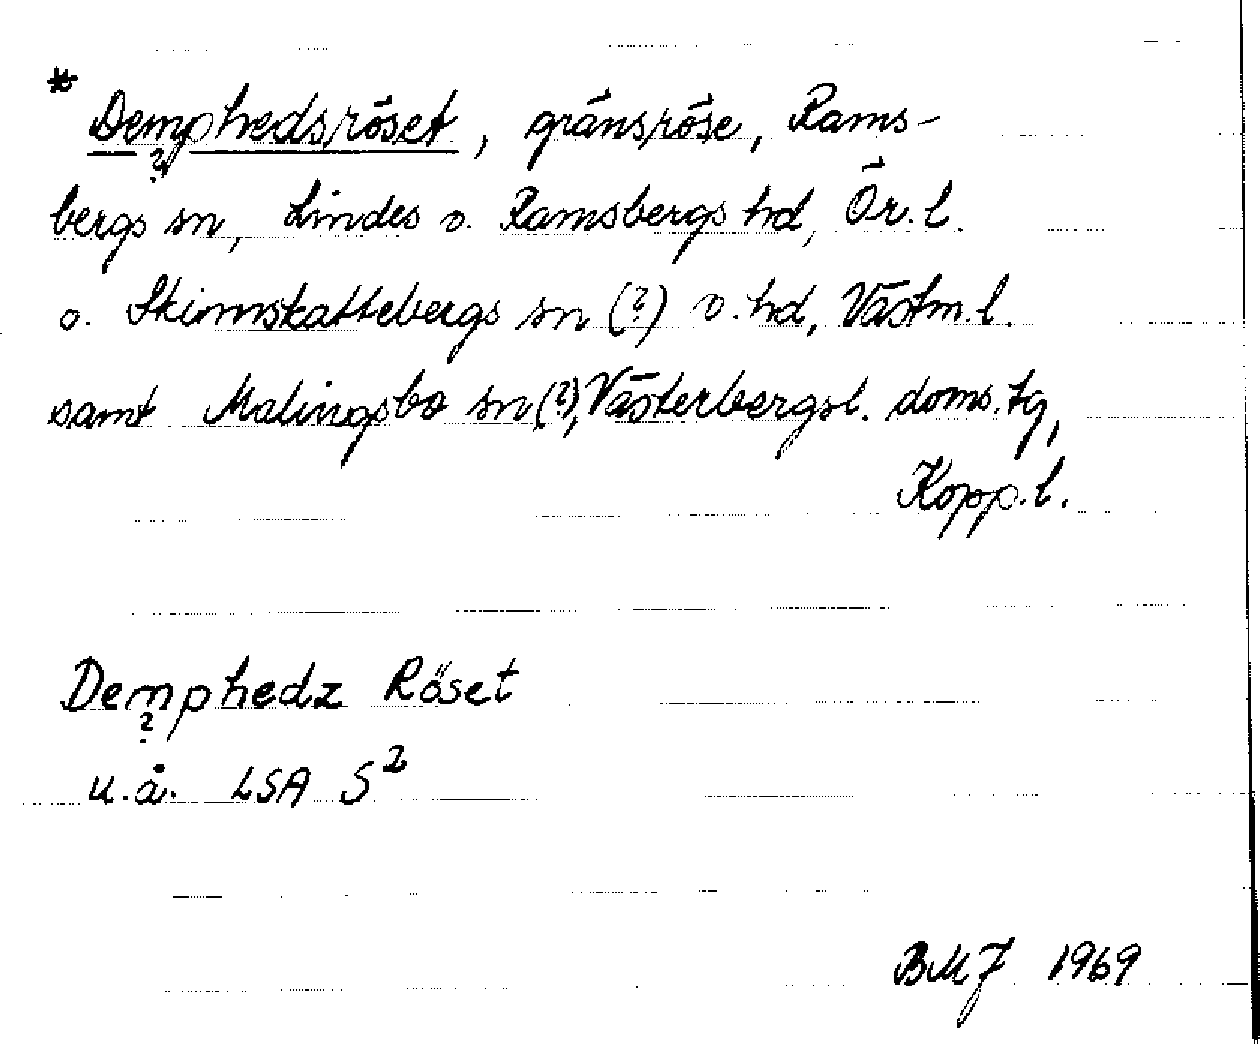 * Demphedsröset, gränsröse, Rams-
?
bergs sn, Lindes o. Ramsbergs hd, Ör. l.
o. Skinnskattebergs sn (?) o. hd, Västm. l.
samt Malingsbo sn (?), Västerbergsl. doms. tg,
Kopp. l.
Demphedz Röset
?
u. å. LSA S²
BMJ 1969